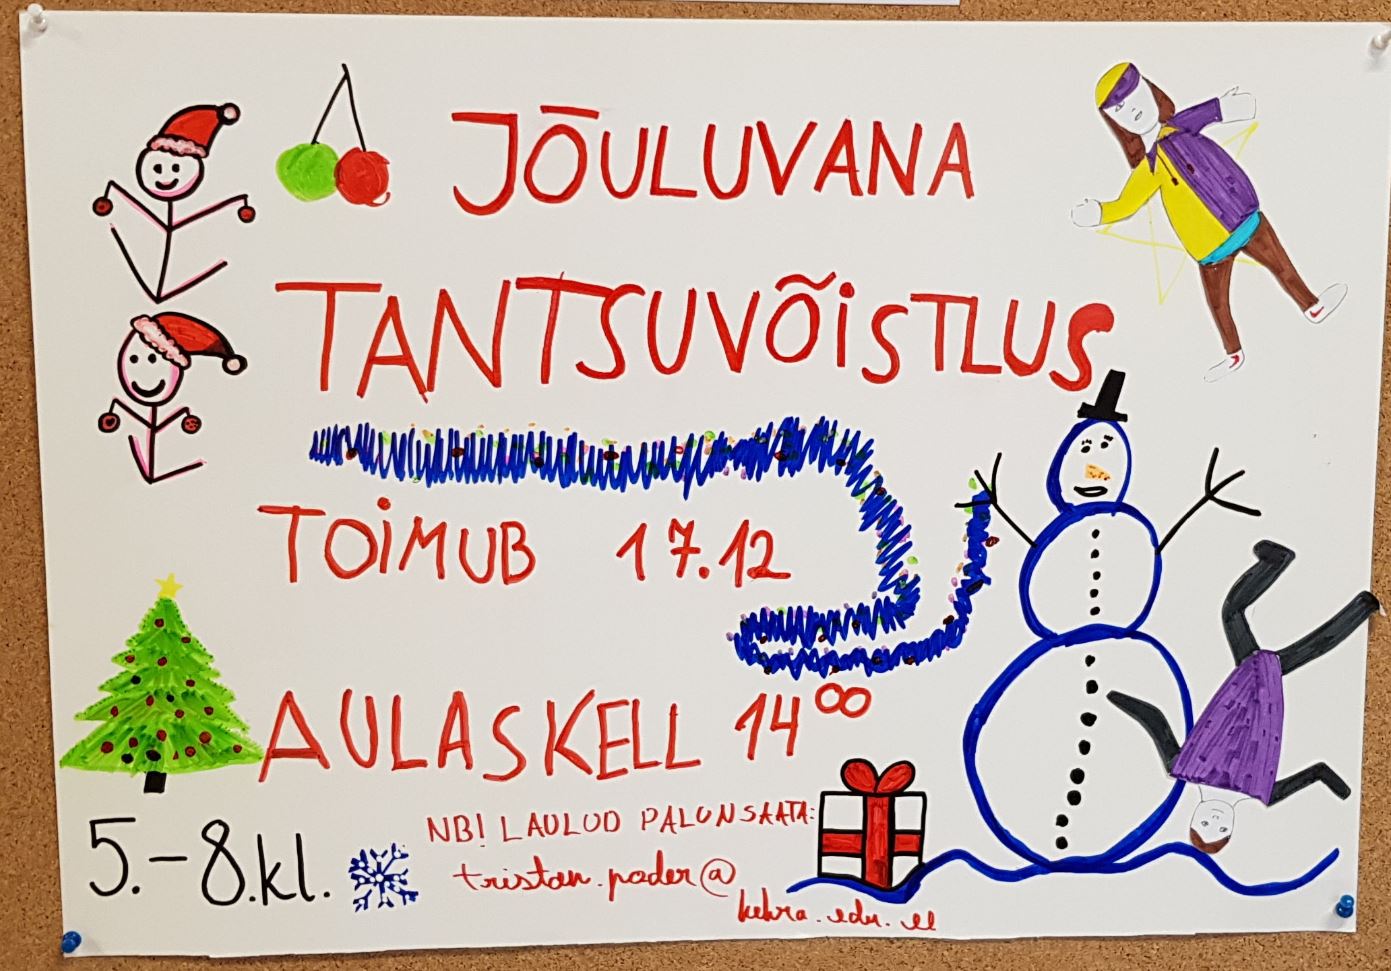 JÕULUVANA
TANTSUVÕiSTLUS
TOiMUB 17.12
AULAS KELL 14⁰⁰
5.-8.kl.
NB! LAULUD PALUN SAATA:
tristan.poder@
kehra.edu.ee